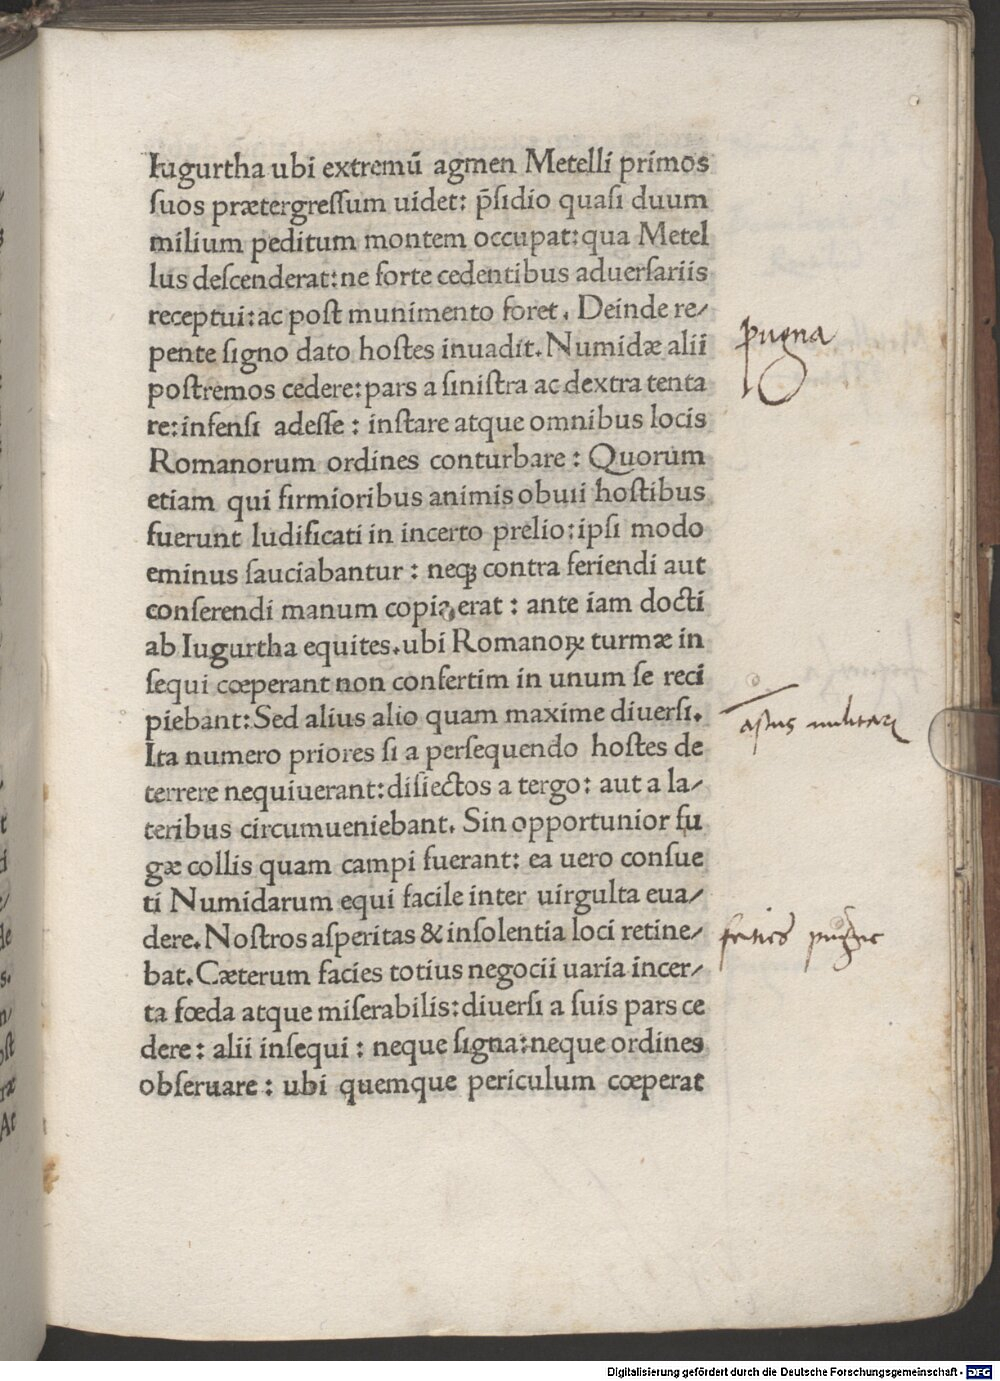 Iugurtha ubi extremū agmen Metelli primos
ſuos prætergreſſum uidet: p̄ſidio quaſi duum
milium peditum montem occupat: qua Metel
lus deſcenderat: ne forte cedentibus aduerſariis
receptui: ac poſt munimento foret. Deinde re/
pente ſigno dato hoſtes inuadit. Numidæ alii
poſtremos cedere: pars a ſiniſtra ac dextra tenta
re: infenſi adeſſe: inſtare atque omnibus locis
Romanorum ordines conturbare: Quorum
etiam qui firmioribus animis obuii hoſtibus
fuerunt ludificati in incerto prelio: ipſi modo
eminus ſauciabantur: neqꝫ contra feriendi aut
conſerendi manum copia erat: ante iam docti
ab Iugurtha equites. ubi Romanoꝝ turmæ in
ſequi cœperant non confertim in unum ſe reci
piebant: Sed alius alio quam maxime diuerſi.
Ita numero priores ſi a perſequendo hoſtes de
terrere nequiuerant: diſiectos a tergo: aut a la/
teribus circumueniebant. Sin opportunior fu
gæ collis quam campi fuerant: ea uero conſue
ti Numidarum equi facile inter uirgulta eua/
dere. Noſtros aſperitas & inſolentia loci retine/
bat. Cæterum facies totius negocii uaria incer/
ta fœda atque miſerabilis: diuerſi a ſuis pars ce
dere: alii inſequi: neque ſigna: neque ordines
obſeruare: ubi quemque periculum cœperat
pugna
aſtus militari
facies pugne
Digitalisierung gefördert durch die Deutsche Forschungsgemeinschaft - DFG